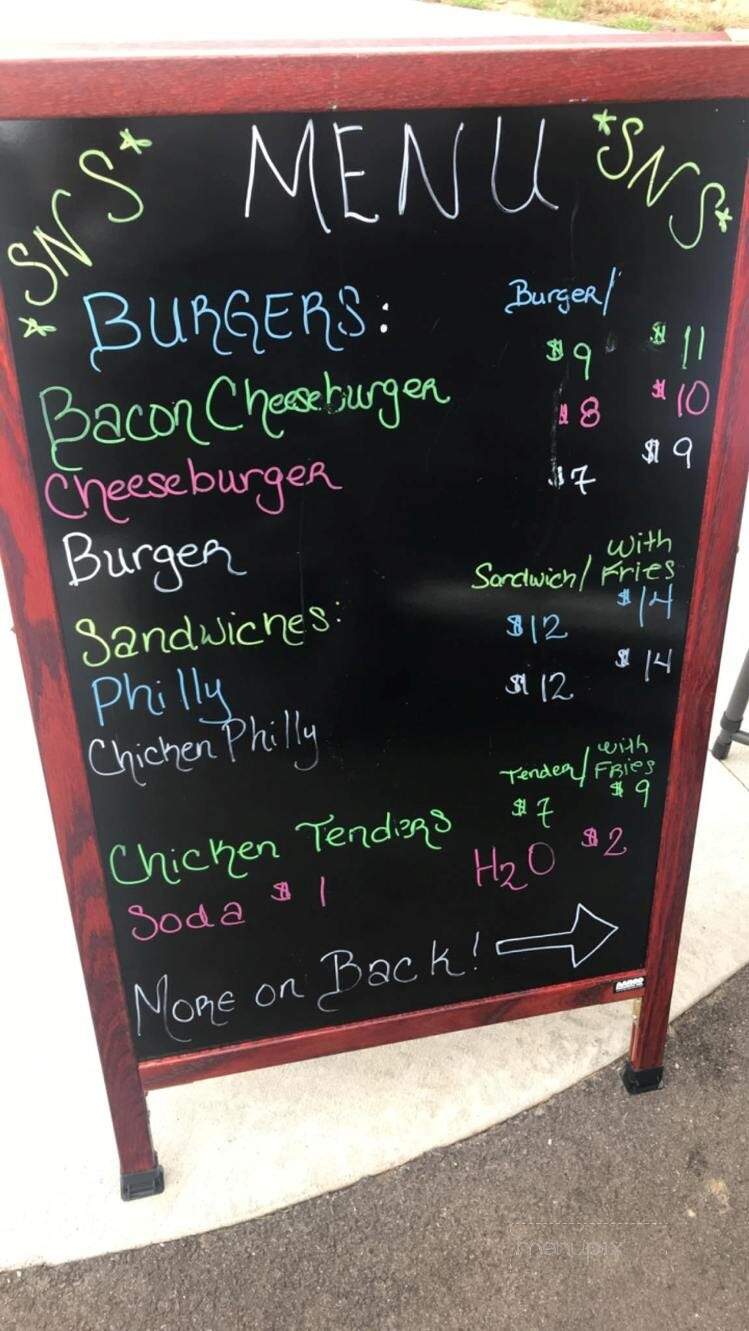 *SNS* MENU *SNS*
BURGERS: Burger/
Bacon Cheeseburger $9 $11
Cheeseburger $8 $10
Burger $7 $9
Sandwiches: Sandwich/ With Fries
Philly $12 $14
Chicken Philly $12 $14
Tender/ With Fries
Chicken Tenders $7 $9
Soda $1 H2O $2
More on Back!
menupix